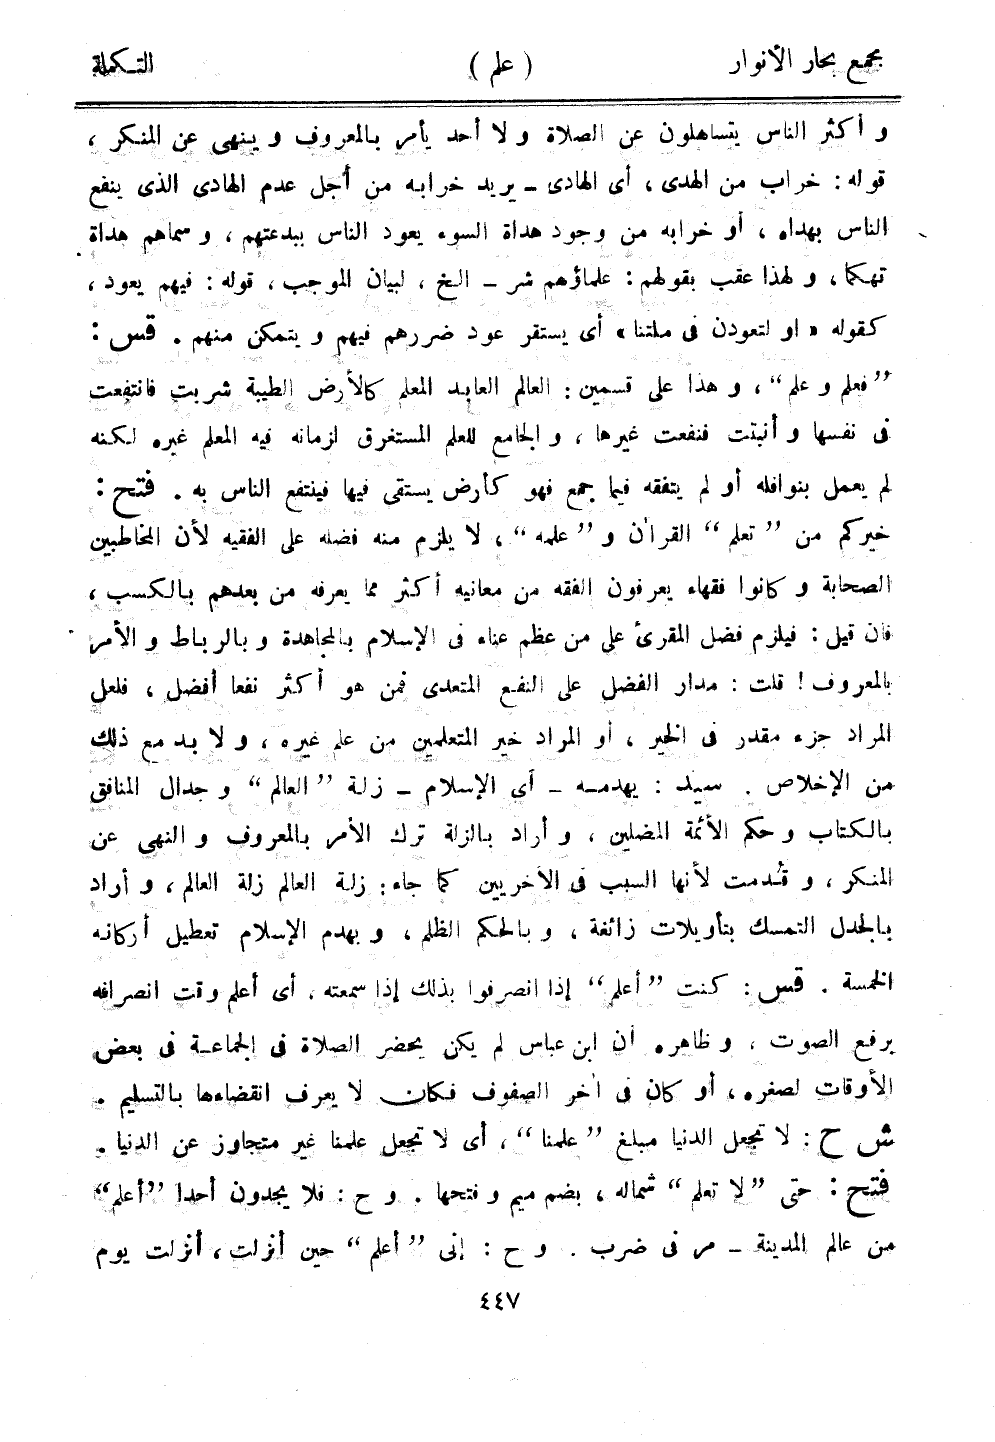 مجمع بحار الأنوار ( علم ) التـكملة
و أكثر الناس يتساهلون عن الصلاة و لا أحد يأمر بالمعروف و ينهى عن المنكر ،
قوله : خراب من الهدى ، أى الهادى ــ يريد خرابه من أجل عدم الهادى الذى ينفع
الناس بهداه ، أو خرابه من وجود هداة السوء يعود الناس ببدعتهم ، و سماهم هداة
تهكما ، و لهذا عقب بقولهم : علماؤهم شر ــ الخ ، لبيان الموجب ، قوله : فيهم يعود ،
كقوله « او لتعودن فى ملتنا » أى يستقر عود ضررهم فيهم و يتمكن منهم . قس :
”فعلم و علم“ ، و هذا على قسمين : العالم العابد المعلم كالأرض الطيبة شربت فانتفعت
فى نفسها و أنبتت فنفعت غيرها ، و الجامع للعلم المستغرق لزمانه فيه المعلم غيره لكنه
لم يعمل بنوافله أو لم يتفقه فيما جمع فهو كأرض يستقى فيها فينتفع الناس به . فتح :
خيركم من ”تعلم“ القرآن و ”علمه“ ، لا يلزم منه فضله على الفقيه لأن المخاطبين
الصحابة و كانوا فقهاء يعرفون الفقه من معانيه أكثر مما يعرفه من بعدهم بالكسب ،
فان قيل : فيلزم فضل المقرئ على من عظم عناء فى الإسلام بالمجاهدة و بالرباط و الأمر
بالمعروف ! قلت : مدار الفضل على النفع المتعدى فمن هو أكثر نفعا أفضل ، فلعل
المراد جزء مقدر فى الخير ، أو المراد خير المتعلمين من علم غيره ، و لا بد مع ذلك
من الإخلاص . سيد : يهدمه ــ أى الإسلام ــ زلة ”العالم“ و جدال المنافق
بالكتاب و حكم الأئمة المضلين ، و أراد بالزلة ترك الأمر بالمعروف و النهى عن
المنكر ، و قُدمت لأنها السبب فى الآخريين كما جاء : زلة العالم زلة العالم ، و أراد
بالجدل التمسك بتأويلات زائغة ، و بالحكم الظلم ، و بهدم الإسلام تعطيل أركانه
الخمسة . قس : كنت ”أعلم“ إذا انصرفوا بذلك إذا سمعته ، أى أعلم وقت انصرافه
يرفع الصوت ، و ظاهره أن ابن عباس لم يكن يحضر الصلاة فى الجماعة فى بعض
الأوقات لصغره ، أو كان فى آخر الصفوف فكان لا يعرف انقضاءها بالتسليم .
ش ح : لا تجعل الدنيا مبلغ ”علمنا“ ، أى لا تجعل علمنا غير متجاوز عن الدنيا .
فتح : حتى ”لا تعلم“ شماله ، بضم ميم و فتحها . و ح : فلا يجدون أحدا ”أعلم“
من عالم المدينة ــ مر فى ضرب . و ح : إنى ”أعلم“ حين أنزلت ، أنزلت يوم
٤٤٧